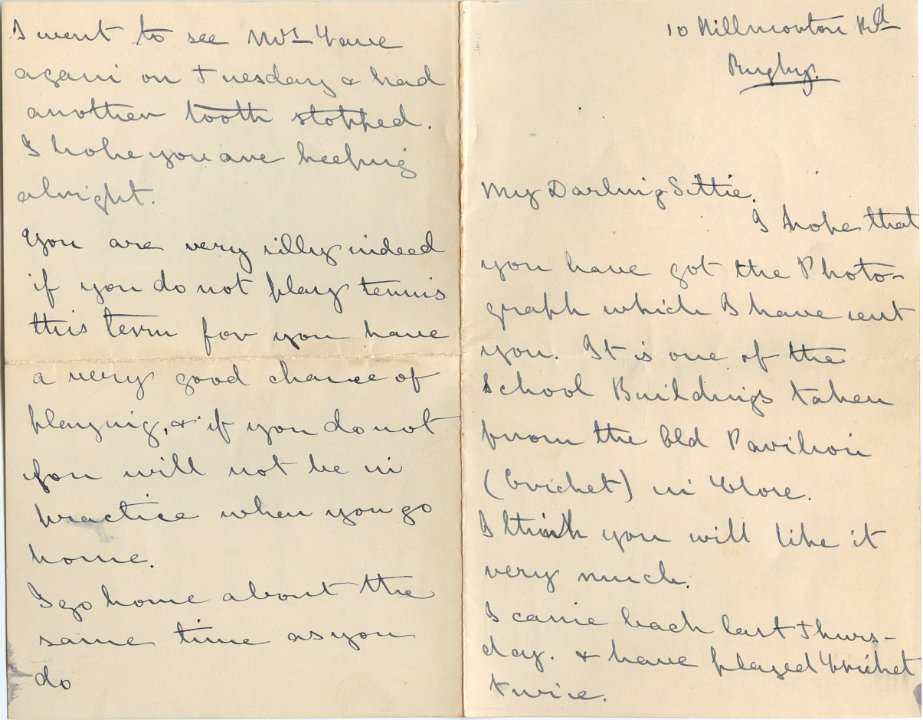 10 Hillmorton Rd
Rugby.
My Darling Sittie.
I hope that
you have got the Photo-
graph which I have sent
you. It is one of the
School Buildings taken
from the Old Pavilion
(Cricket) in Close.
I think you will like it
very much.
I came back last Thurs-
day. & have played Cricket
twice.
I went to see Mr Cane
again on Tuesday & had
another tooth stopped.
I hope you are keeping
alright.
You are very silly indeed
if you do not play tennis
this term for you have
a very good chance of
playing, & if you do not
you will not be in
practice when you go
home.
I go home about the
same time as you
do